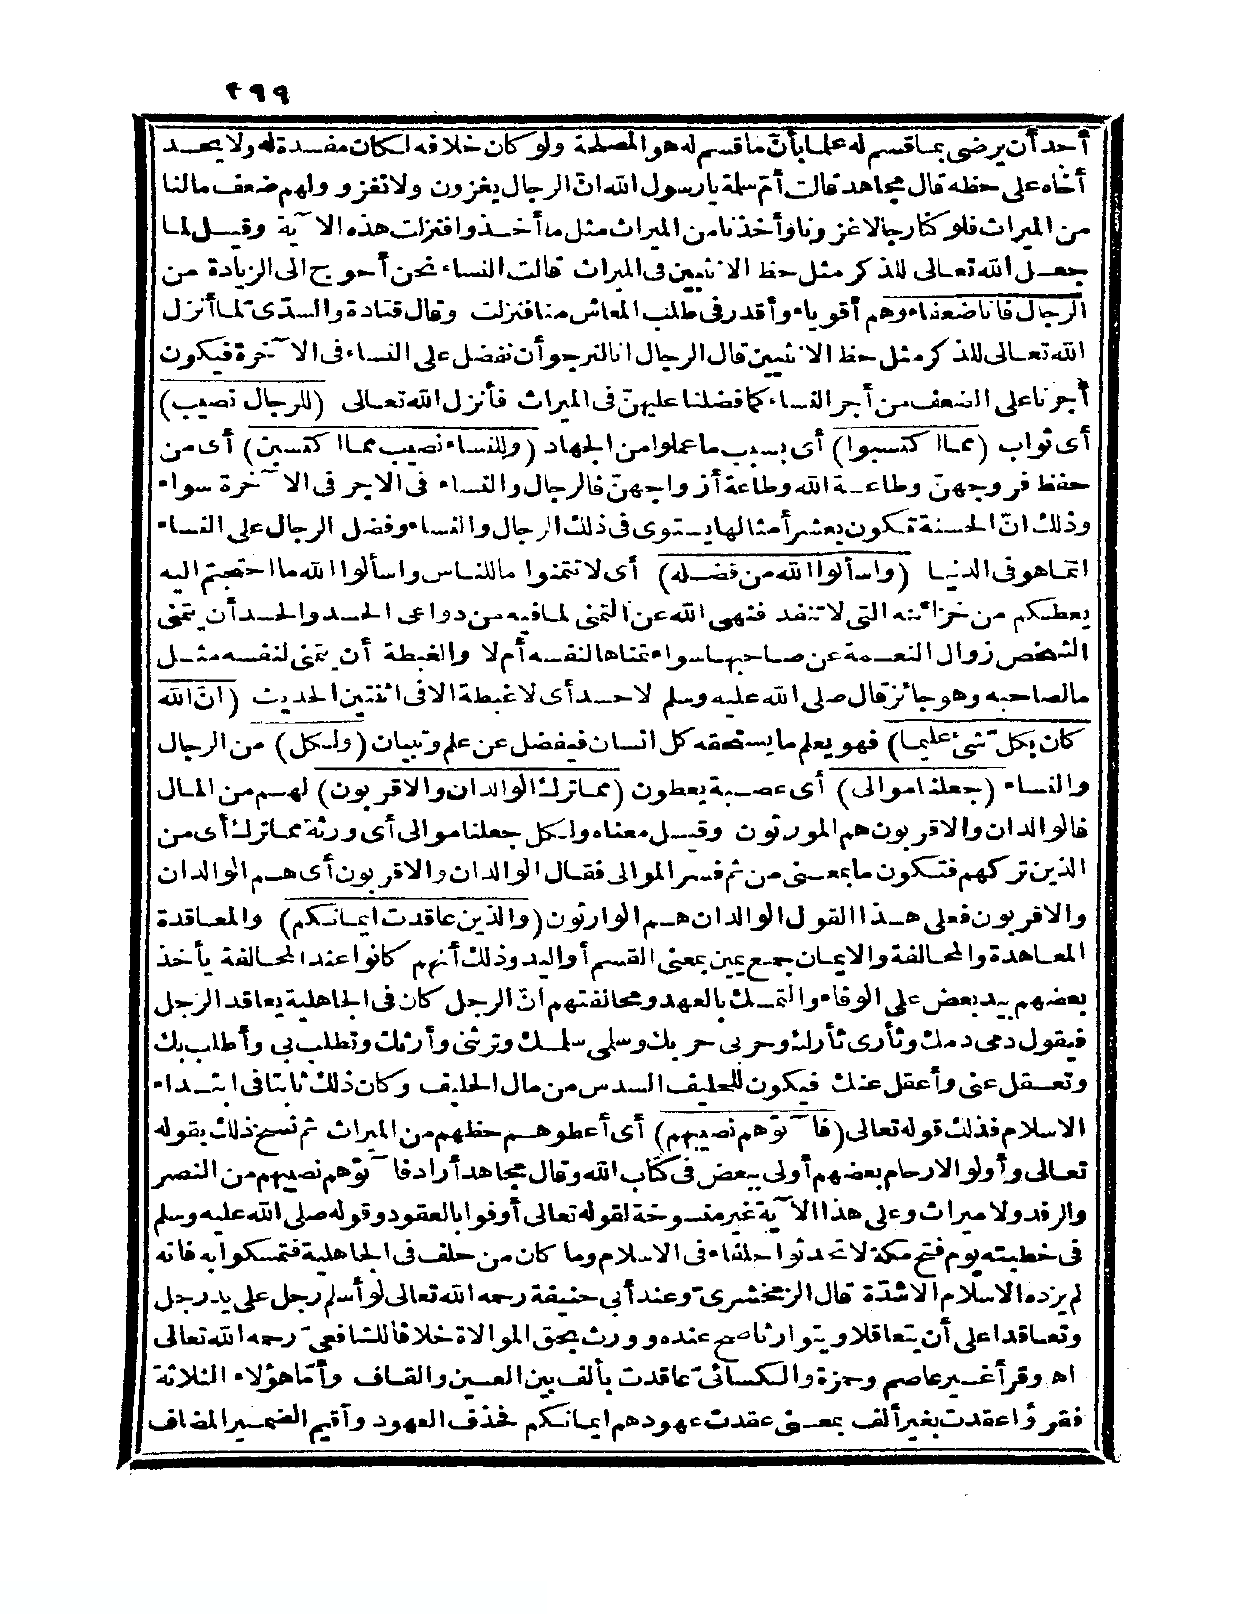 ٢٩٩
أحد أن يرضى بما قسم له علما بأنّ ما قسم له هو المصلحة ولو كان خلافه لكان مفسدة له ولا يحسد
أخاه على حظه قال مجاهد قالت أمّ سلمة يا رسول الله انّ الرجال يغزون ولا نغزو ولهم ضعف مالنا
من الميراث فلو كنا رجالا غزونا وأخذنا من الميراث مثل ما أخذوا فنزلت هذه الآية وقيل لما
جعل الله تعالى للذكر مثل حظ الانثيين فى الميراث قالت النساء نحن أحوج الى الزيادة من
الرجال فانا ضعفاء وهم أقوياء وأقدر فى طلب المعاش منا فنزلت وقال قتادة والسدّى لما أنزل
الله تعالى للذكر مثل حظ الانثيين قال الرجال انا لنرجو أن نفضل على النساء فى الآخرة فيكون
أجرنا على الضعف من أجر النساء كما فضلنا عليهنّ فى الميراث فأنزل الله تعالى (للرجال نصيب)
أى ثواب (مما اكتسبوا) أى بسبب ما عملوا من الجهاد (وللنساء نصيب مما اكتسبن) أى من
حفظ فروجهنّ وطاعة الله وطاعة أزواجهنّ فالرجال والنساء فى الاجر فى الآخرة سواء
وذلك انّ الحسنة تكون بعشر أمثالها يستوى فى ذلك الرجال والنساء وفضل الرجال على النساء
انما هو فى الدنيا (واسألوا الله من فضله) أى لا تتمنوا ما للناس واسألوا الله ما احتجتم اليه
يعطكم من خزائنه التى لا تنفد فنهى الله عن التمنى لما فيه من دواعى الحسد والحسد أن يتمنى
الشخص زوال النعمة عن صاحبها سواء تمناها لنفسه أم لا والغبطة أن يتمنى لنفسه مثل
ما لصاحبه وهو جائز قال صلى الله عليه وسلم لا حسد أى لا غبطة الا فى اثنتين الحديث (انّ الله
كان بكل شىء عليما) فهو يعلم ما يستحقه كل انسان فيفضل عن علم وتبيان (ولكل) من الرجال
والنساء (جعلنا موالى) أى عصبة يعطون (مما ترك الوالدان والاقربون) لهم من المال
فالوالدان والاقربون هم المورثون وقيل معناه ولكل جعلنا موالى أى ورثة مما ترك أى من
الذين تركهم فتكون ما بمعنى من ثم فسر الموالى فقال الوالدان والاقربون أى هم الوالدان
والاقربون فعلى هذا القول الوالدان هم الوارثون (والذين عاقدت ايمانكم) والمعاقدة
المعاهدة والمحالفة والايمان جمع يمين بمعنى القسم أو اليد وذلك أنهم كانوا عند المحالفة يأخذ
بعضهم بيد بعض على الوفاء والتمسك بالعهد ومحالفتهم انّ الرجل كان فى الجاهلية يعاقد الرجل
فيقول دمى دمك وثأرى ثأرك وحربى حربك وسلمى سلمك وترثنى وأرثك وتطلب بى وأطلب بك
وتعقل عنى وأعقل عنك فيكون للحليف السدس من مال الحليف وكان ذلك ثابتا فى ابتداء
الاسلام فذلك قوله تعالى (فآتوهم نصيبهم) أى أعطوهم حظهم من الميراث ثم نسخ ذلك بقوله
تعالى وأولو الارحام بعضهم أولى ببعض فى كتاب الله وقال مجاهد أراد فآتوهم نصيبهم من النصر
والرفد ولا ميراث وعلى هذا الآية غير منسوخة لقوله تعالى أوفوا بالعقود وقوله صلى الله عليه وسلم
فى خطبته يوم فتح مكة لا تحدثوا حلفاء فى الاسلام وما كان من حلف فى الجاهلية فتمسكوا به فانه
لم يزده الاسلام الا شدّة قال الزمخشرىّ وعند أبى حنيفة رحمه الله تعالى لو أسلم رجل على يد رجل
وتعاقدا على أن يتعاقلا ويتوارثا صح عنده وورث بحق الموالاة خلافا للشافعىّ رحمه الله تعالى
اه وقرأ غير عاصم وحمزة والكسائىّ عاقدت بألف بين العين والقاف وأمّا هؤلاء الثلاثة
فقرؤا عقدت بغير ألف بمعنى عقدت عهودهم ايمانكم فحذف العهود وأقيم الضمير المضاف